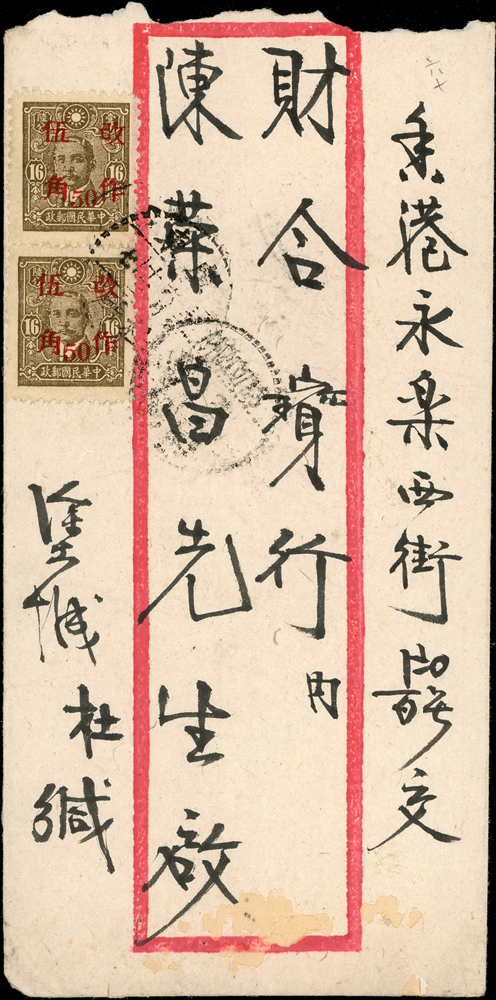 香港永楽西街 交
財合寶行內
陳 昌先生啟
塗城杜緘
改作
伍角
50
16 16
中華民國郵政
改作
伍角
50
16 16
中華民國郵政